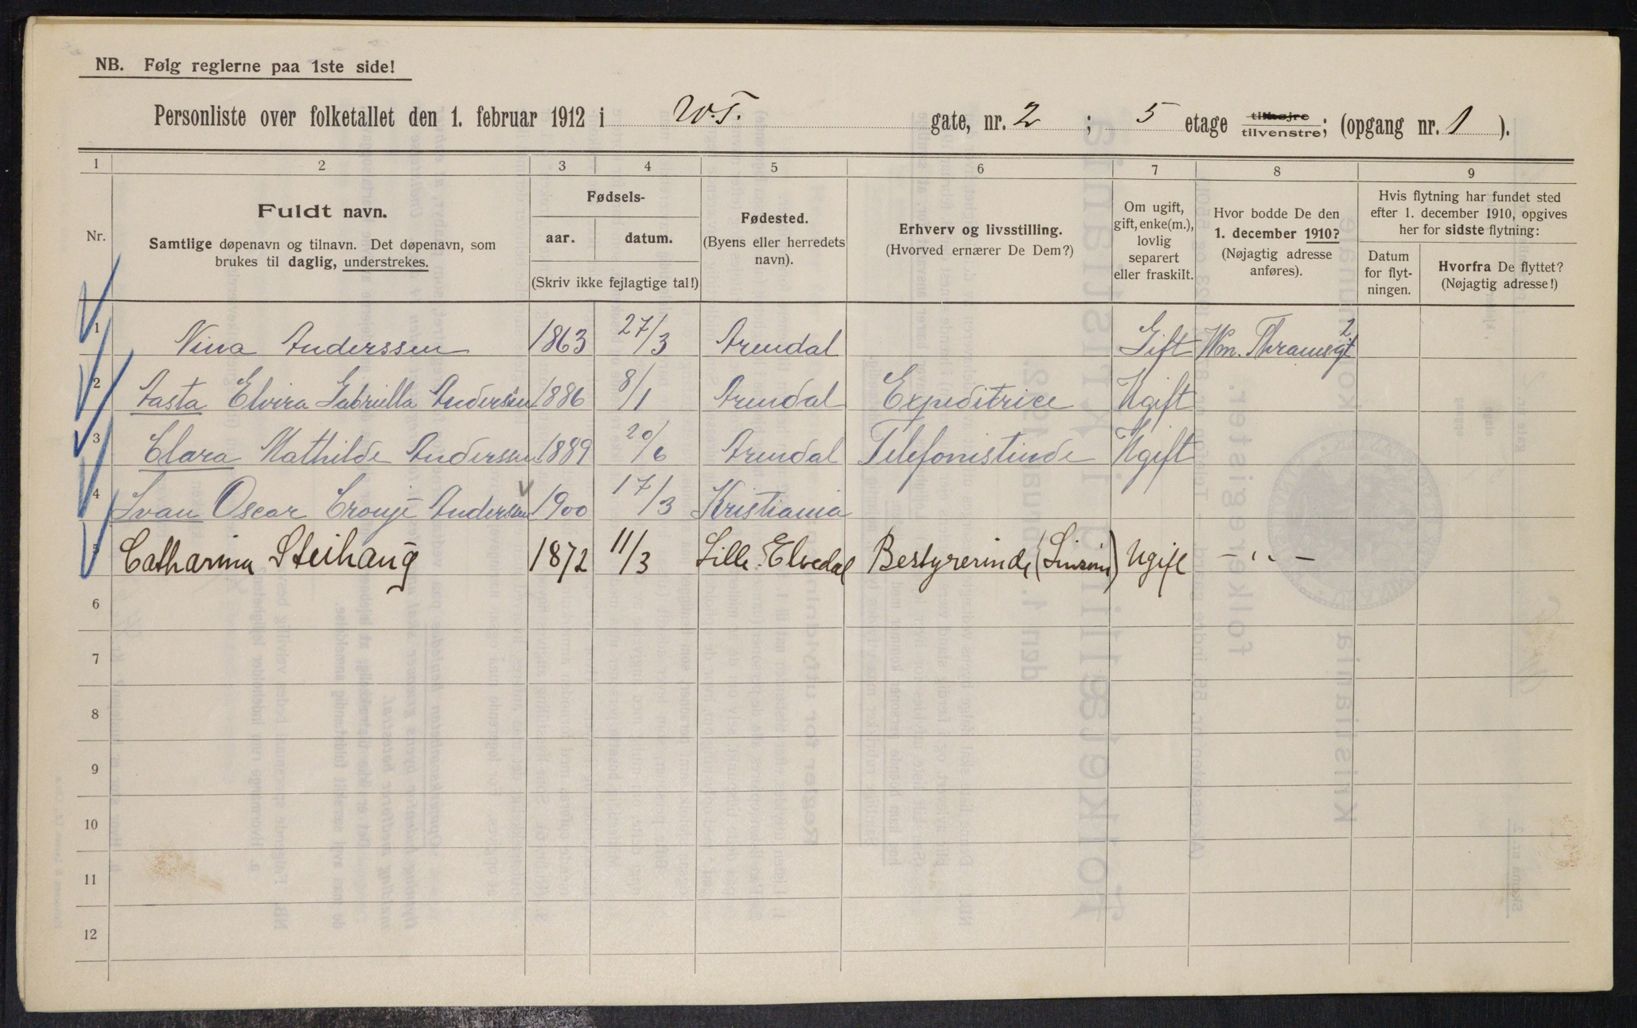 NB. Følg reglerne paa 1ste side!
Personliste over folketallet den 1. februar 1912 i W.T. gate, nr. 2 ; 5 etage tilhøjre tilvenstre; (opgang nr. 1 ).
1 2 3 4 5 6 7 8 9
Nr.
Fuldt navn.
Samtlige døpenavn og tilnavn. Det døpenavn, som
brukes til daglig, understrekes.
Fødsels-
aar. datum.
(Skriv ikke fejlagtige tal!)
Fødested.
(Byens eller herredets
navn).
Erhverv og livsstilling.
(Hvorved ernærer De Dem?)
Om ugift,
gift, enke(m.),
lovlig
separert
eller fraskilt.
Hvor bodde De den
1. december 1910?
(Nøjagtig adresse
anføres).
Hvis flytning har fundet sted
efter 1. december 1910, opgives
her for sidste flytning:
Datum
for flyt-
ningen.
Hvorfra De flyttet?
(Nøjagtig adresse!)
1 Nina Anderssen 1863 27/3 Arendal Gift Wm. Thranesgt 2
2 Aasta Elvira Gabriella Anderssen 1886 8/1 Arendal Expeditrice Ugift
3 Clara Mathilde Anderssen 1889 20/6 Arendal Telefonistinde Ugift
4 Ivan Oscar Cronje Anderssen 1900 17/3 Kristiania
5 Catharina Steihaug 1872 11/3 Lille-Elvedal Bestyrerinde Ugift - " -
6
7
8
9
10
11
12